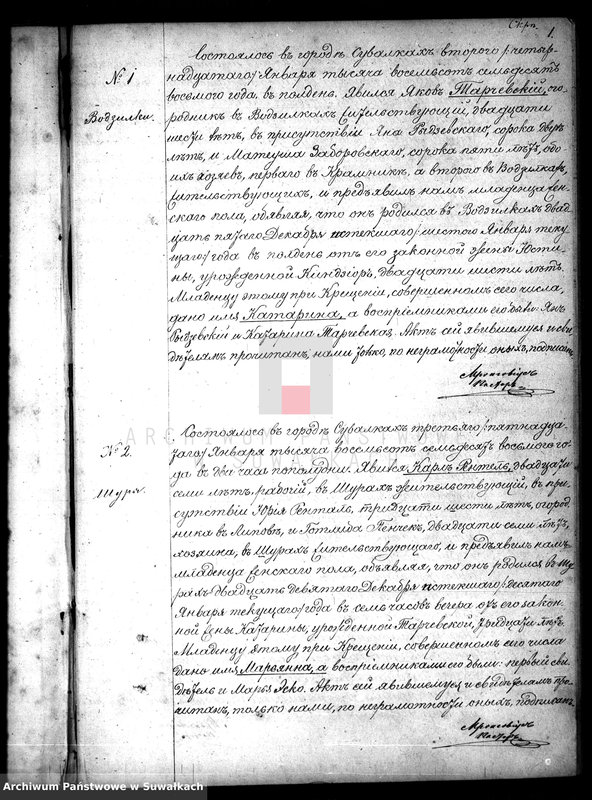 Скрп
1.
№ 1
Водзилки.
Состоялось въ городѣ Сувалкахъ второго /четыр-
надцатаго/ Января тысяча восемьсотъ семьдесятъ
восьмого года въ полдень. Явился Яковъ Тарчевскій, ого-
родникъ въ Водзилкахъ жительствующій, двадцати
шести лѣтъ, въ присутствіи Яна Рыдзевскаго, сорока двухъ
лѣтъ, и Матеуша Заборовскаго, сорока пяти лѣтъ, обо-
ихъ хозяевъ, перваго въ Крамникѣ, а второго въ Водзилкахъ
жительствующихъ, и предъявилъ намъ младенца жен-
скаго пола, объявляя, что онъ родился въ Водзилкахъ двад-
цать пятаго Декабря истекшаго /шестого Января теку-
щаго/ года въ полдень отъ его законной жены Юсти-
ны, урожденной Киндзіоръ, двадцати шести лѣтъ.
Младенцу этому при Крещеніи, совершенномъ сего числа,
дано имя Катарина, а воспріемниками его были: Янъ
Рыдзевскій и Катарина Тарчевская. Актъ сей явившемуся и сви-
дѣтелямъ прочитанъ, нами только, по неграмотности оныхъ, подписанъ
Пасторъ
№ 2.
Шури.
Состоялось въ городѣ Сувалкахъ третьяго /пятнадца-
таго/ Января тысяча восемьсотъ семьдесятъ восьмого го-
да въ два часа пополудни. Явился Карлъ двадцати
семи лѣтъ, рабочій, въ Шурахъ жительствующій, въ при-
сутствіи Юрія тридцати шести лѣтъ, огород-
ника въ Липовѣ, и Готлида Пенчекъ, двадцати семи лѣтъ,
хозяина, въ Шурахъ жительствующаго, и предъявилъ намъ
младенца женскаго пола, объявляя, что онъ родился въ Шу-
рахъ двадцать девятаго Декабря истекшаго /десятаго
Января текущаго/ года въ семь часовъ вечера отъ его закон-
ной жены Катарины, урожденной Тарчевской, тридцати лѣтъ.
Младенцу этому при Крещеніи, совершенномъ сего числа
дано имя Марьянна, а воспріемниками его были: первый сви-
дѣтель и Марья Эско. Актъ сей явившемуся и свидѣтелямъ про-
читанъ, только нами, по неграмотности оныхъ, подписанъ
Пасторъ
ARCHIWUM PAŃSTWOWE
Archiwum Państwowe w Suwałkach